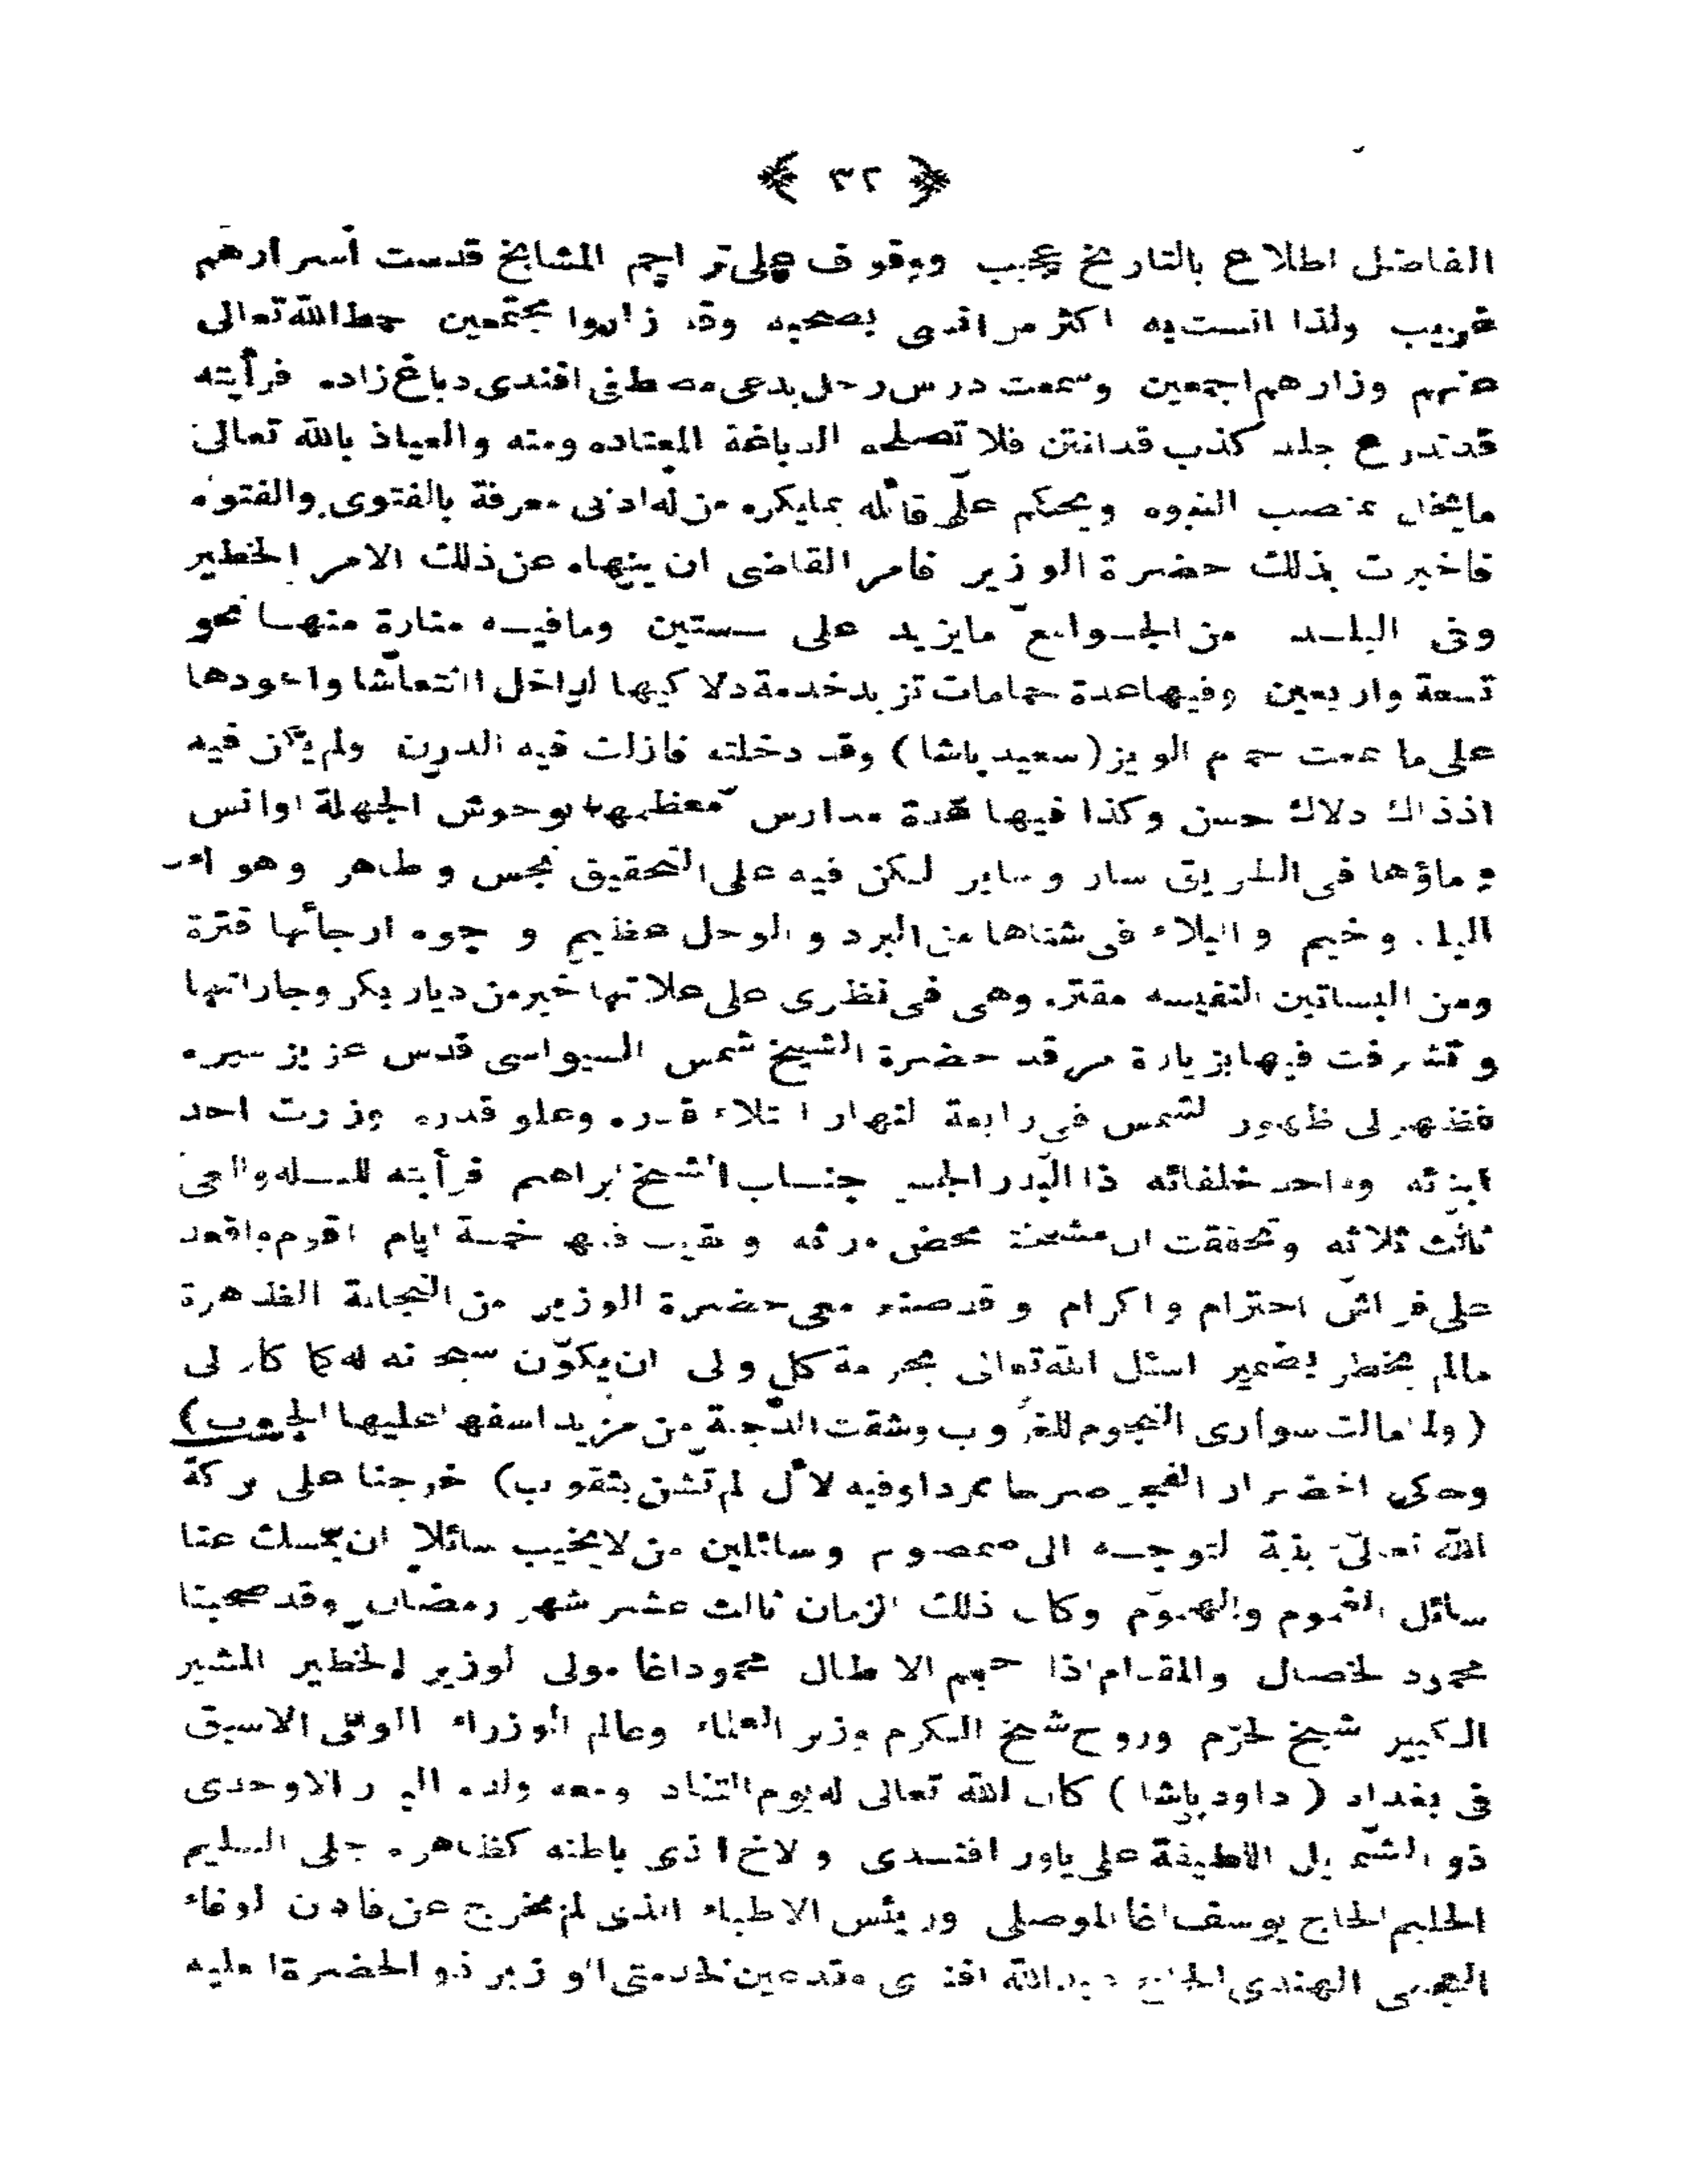 ﴿ ٣٢ ﴾
الفاضل اطلاع بالتاريخ عجيب ووقوف على تراجم المشايخ قدست أسرارهم
غريب ولذا انست به اكثر من انسى بصحبه وقد زاروا مجتمعين حط الله تعالى
عنهم وزارهم اجمعين وسمعت درس رجل يدعى مصطفى افندى دباغ زاده فرأيته
قد تدرع جلد كذب قد انتن فلا تصلحه الدباغة المعتاده ومنه والعياذ بالله تعالى
ما يخل بمنصب النبوه ويحكم على قائله بما يكره من له ادنى معرفة بالفتوى والفتوه
فاخبرت بذلك حضرة الوزير فامر القاضى ان ينهاه عن ذلك الامر الخطير
وفى البلد من الجوامع ما يزيد على ستين ومافيه منارة منها نحو
تسعة واربعين وفيها عدة حمامات تزيد خدمة دلاكيها الداخل انتعاشا واجودها
على ما سمعت حمام الوزير (سعيد باشا) وقد دخلته فازلت فيه الدرن ولم يكن فيه
اذ ذاك دلاك حسن وكذا فيها عدة مدارس معظمها بوحوش الجهلة اوانس
وماؤها فى الطريق سار وساير لكن فيه على التحقيق نجس وطاهر وهو
البلد وخيم والبلاء فى شتاها من البرد والوحل عظيم ووجوه ارجائها قترة
ومن البساتين النفيسه مقتره وهى فى نظرى على علاتها خير من ديار بكر وجاراتها
وتشرفت فيها بزيارة مرقد حضرة الشيخ شمس السيواسى قدس عزيز سره
فظهر لى ظهور الشمس فى رابعة النهار اعتلاء قدره وعلو قدره وزرت احد
ابنائه واحد خلفائه ذا البدر جناب الشيخ ابراهيم فرأيته
ثالث ثلاثه وتحققت ان مشيخته محض ورثه وبقيت فيها خمسة ايام اقوم واقعد
على فراش احترام واكرام وقد صنع معى حضرة الوزير من النجابة الظاهرة
مالم يخطر بضمير اسئل الله تعالى بحرمة كل ولى ان يكون سبحانه له كما كان لى
(ولما مالت سوارى النجوم للغروب وشقت الدجنة من مزيد اسفها عليها الجيوب)
وحكى اخضرار الفجر صرحا ممردا وفيه لآل لم تشن بثقوب) خرجنا على بركة
الله تعالى بنية التوجه الى معصوم وسائلين من لا يخيب سائلا ان يمسك عنا
سائل الغموم والهموم وكان ذلك الزمان ثالث عشر شهر رمضان وقد صحبنا
محمود الخصال والمقام اذا الابطال محمود اغا مولى الوزير الخطير المشير
الكبير شيخ الحرم وروح شيخ الكرم وزير العلماء وعالم الوزراء الوالى الاسبق
فى بغداد (داود باشا) كان الله تعالى له يوم التناد ومعه ولده الاوحدى
ذو الشمايل اللطيفة على ياور افندى والاخ الذى باطنه كظاهره جلى السليم
الحليم الحاج يوسف اغا الموصلى وريئس الاطباء الذى لم يخرج عن قانون الوفاء
الهندى الحاج عبدالله افندى متقدمين لخدمتى الوزير ذو الحضرة العليه